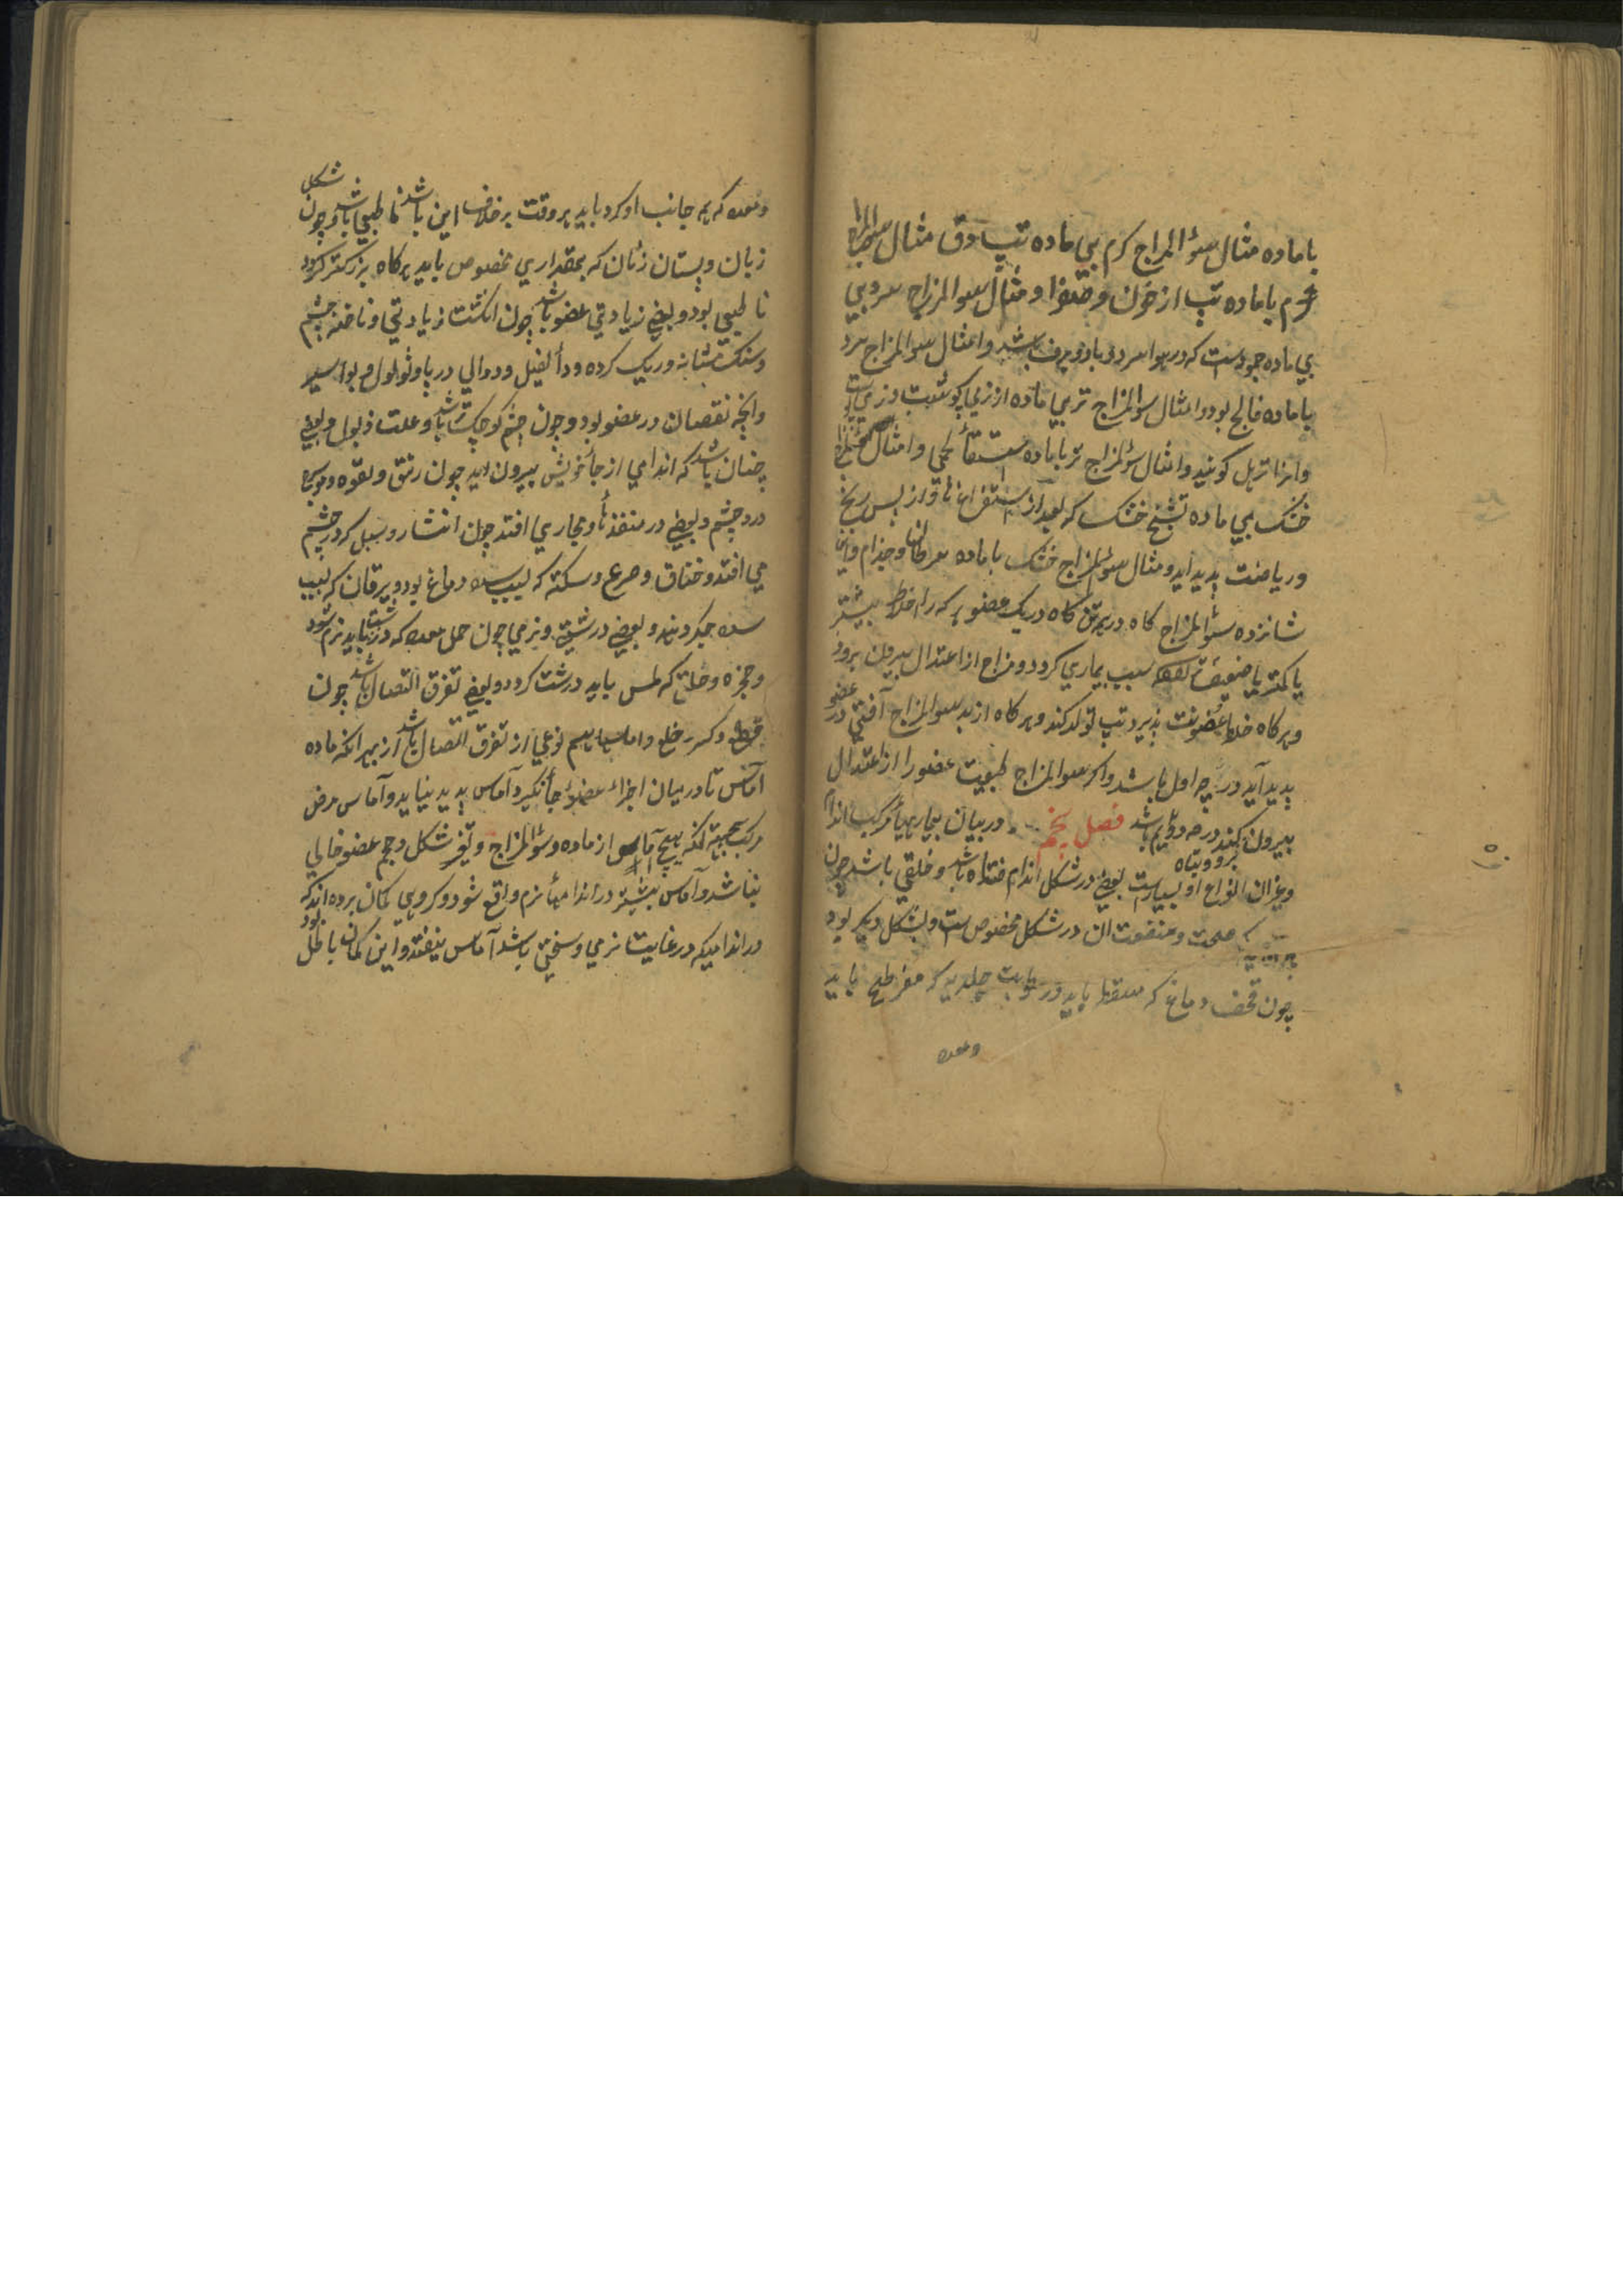 با ماده مثال سوٴ المزاج کرم بي ماده تب دق مثال سوٴ المزاج
کرم با ماده تب از خون و صفرا و مثال سوٴ المزاج سرد بي
بي ماده جمودست که در هوا سرد و باد و برف باشد و امثال سوٴ المزاج سرد
با ماده فالج بود و امثال سوٴ المزاج تر بي ماده از نرمي کوشت و نرمي
و انرا ترهل کویند و امثال سوٴ المزاج تر با ماده استسقاٴ لحمي و امثال سوٴ المزاج
خشک بي ماده تشنج خشک که بعد از استفراغها و از پس رنج
و ریاضت بدید اید و مثال سوٴ المزاج خشک با ماده سرطان و جذام و این
شانزده سوٴ المزاج کاه در همه تن کاه در یک عضو هر که را خلط بیشتر
یا کمتر یا ضعیف سبب بیماري کردد و مزاج از اعتدال بیرون برود
و هر کاه خلط عفونت پذیرد تب تولد کند و هر کاه از بد سوٴ المزاج آفتي در عضو
بدید آید درجه اول باشد و اکر سوٴ المزاج طبیعت عضو را از اعتدال
بیرون کند درجه دویم باشد فصل پنجم در بیان بیماریهاٴ مرکب اندام
برو و تباه
و غیر ان انواع او بسیارست بعضي در شکل اندام افتاده باشد و خلقي باشد چون
صحت و منفعت ان در شکل مخصوص ست و بشکل دیکر بود
چون قحف دماغ که باید و رطوبت جلیدیه که مفرطح باید
و معده
و معده که به جانب او کرد باید هر وقت بر خلاف این باشد نا طبیعي باشد و چون شکل
زبان و پستان زنان که بمقداري مخصوص باید هرکاه بزرکتر کردد
نا طبیعي بود و بعضي زیادتي عضو باشد چون انکشت زیادتي و ناخنه چشم
و سنک مثانه و ریک کرده و داٴ الفیل و دوالي در پا و ثولول و بواسیر
و انچه نقصان در عضو بود و چون چشم کوچک باشد و علت ذبول و بعضي
چنان باشد که اندامي از جاٴ خویش بیرون اید چون رتق و لقوه و
درد چشم و بعضي در منفذهاٴ و مجاري افتد چون انتشار و سبل که در چشم
مي افتد و خناق و صرع و سکته که بسبب سده دماغ بود و یرقان که بسبب
سده جکر و بعضي در درشتي و نرمي چون خمل معده که درشت باید نرم شود
و حنجره و حلق که املس باید درشت کردد و بعضي تفرق اتصال باشد چون
قطع و کسر و خلع و اماسها هم نوعي از تفرق اتصال باشد از بهر انکه ماده
آماس تا در میان اجزاٴ عضو جاٴ نکیرد آماس بدید نیاید و آماس مرض
مرکبست بجهته انکه هیچ آماس از ماده و سوٴ المزاج و تغیر شکل و حجم عضو خالي
نباشد و آماس بیشتر در اندامهاٴ نرم واقع شود و کروهي کمان برده اند که
در اندامیکه در غایت نرمي و سختي باشد آماس نیفتد و این کمان باطل بود